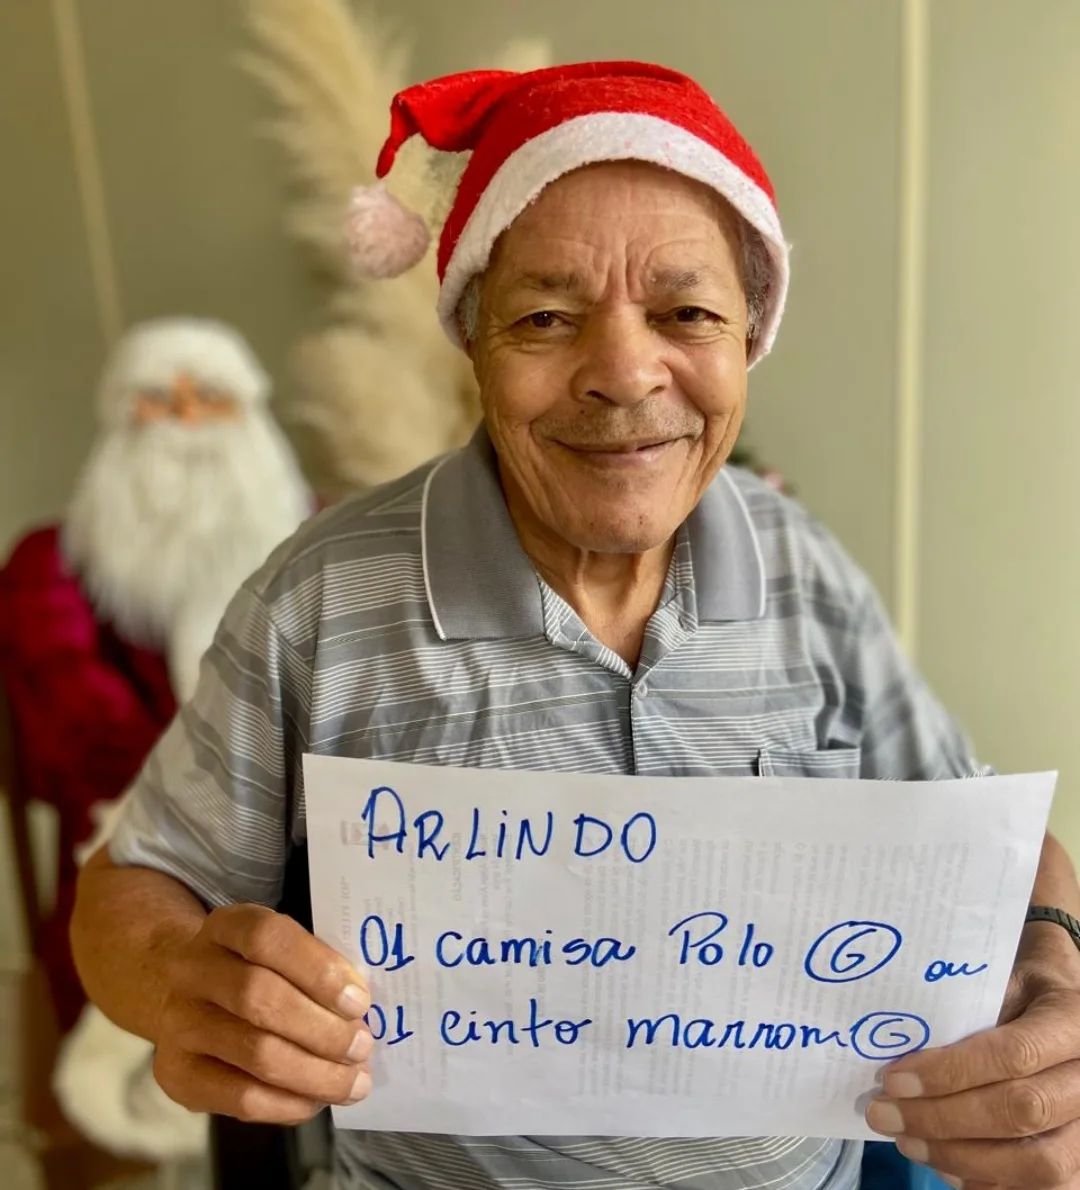 ARLINDO
01 camisa Polo G ou
01 cinto marrom G